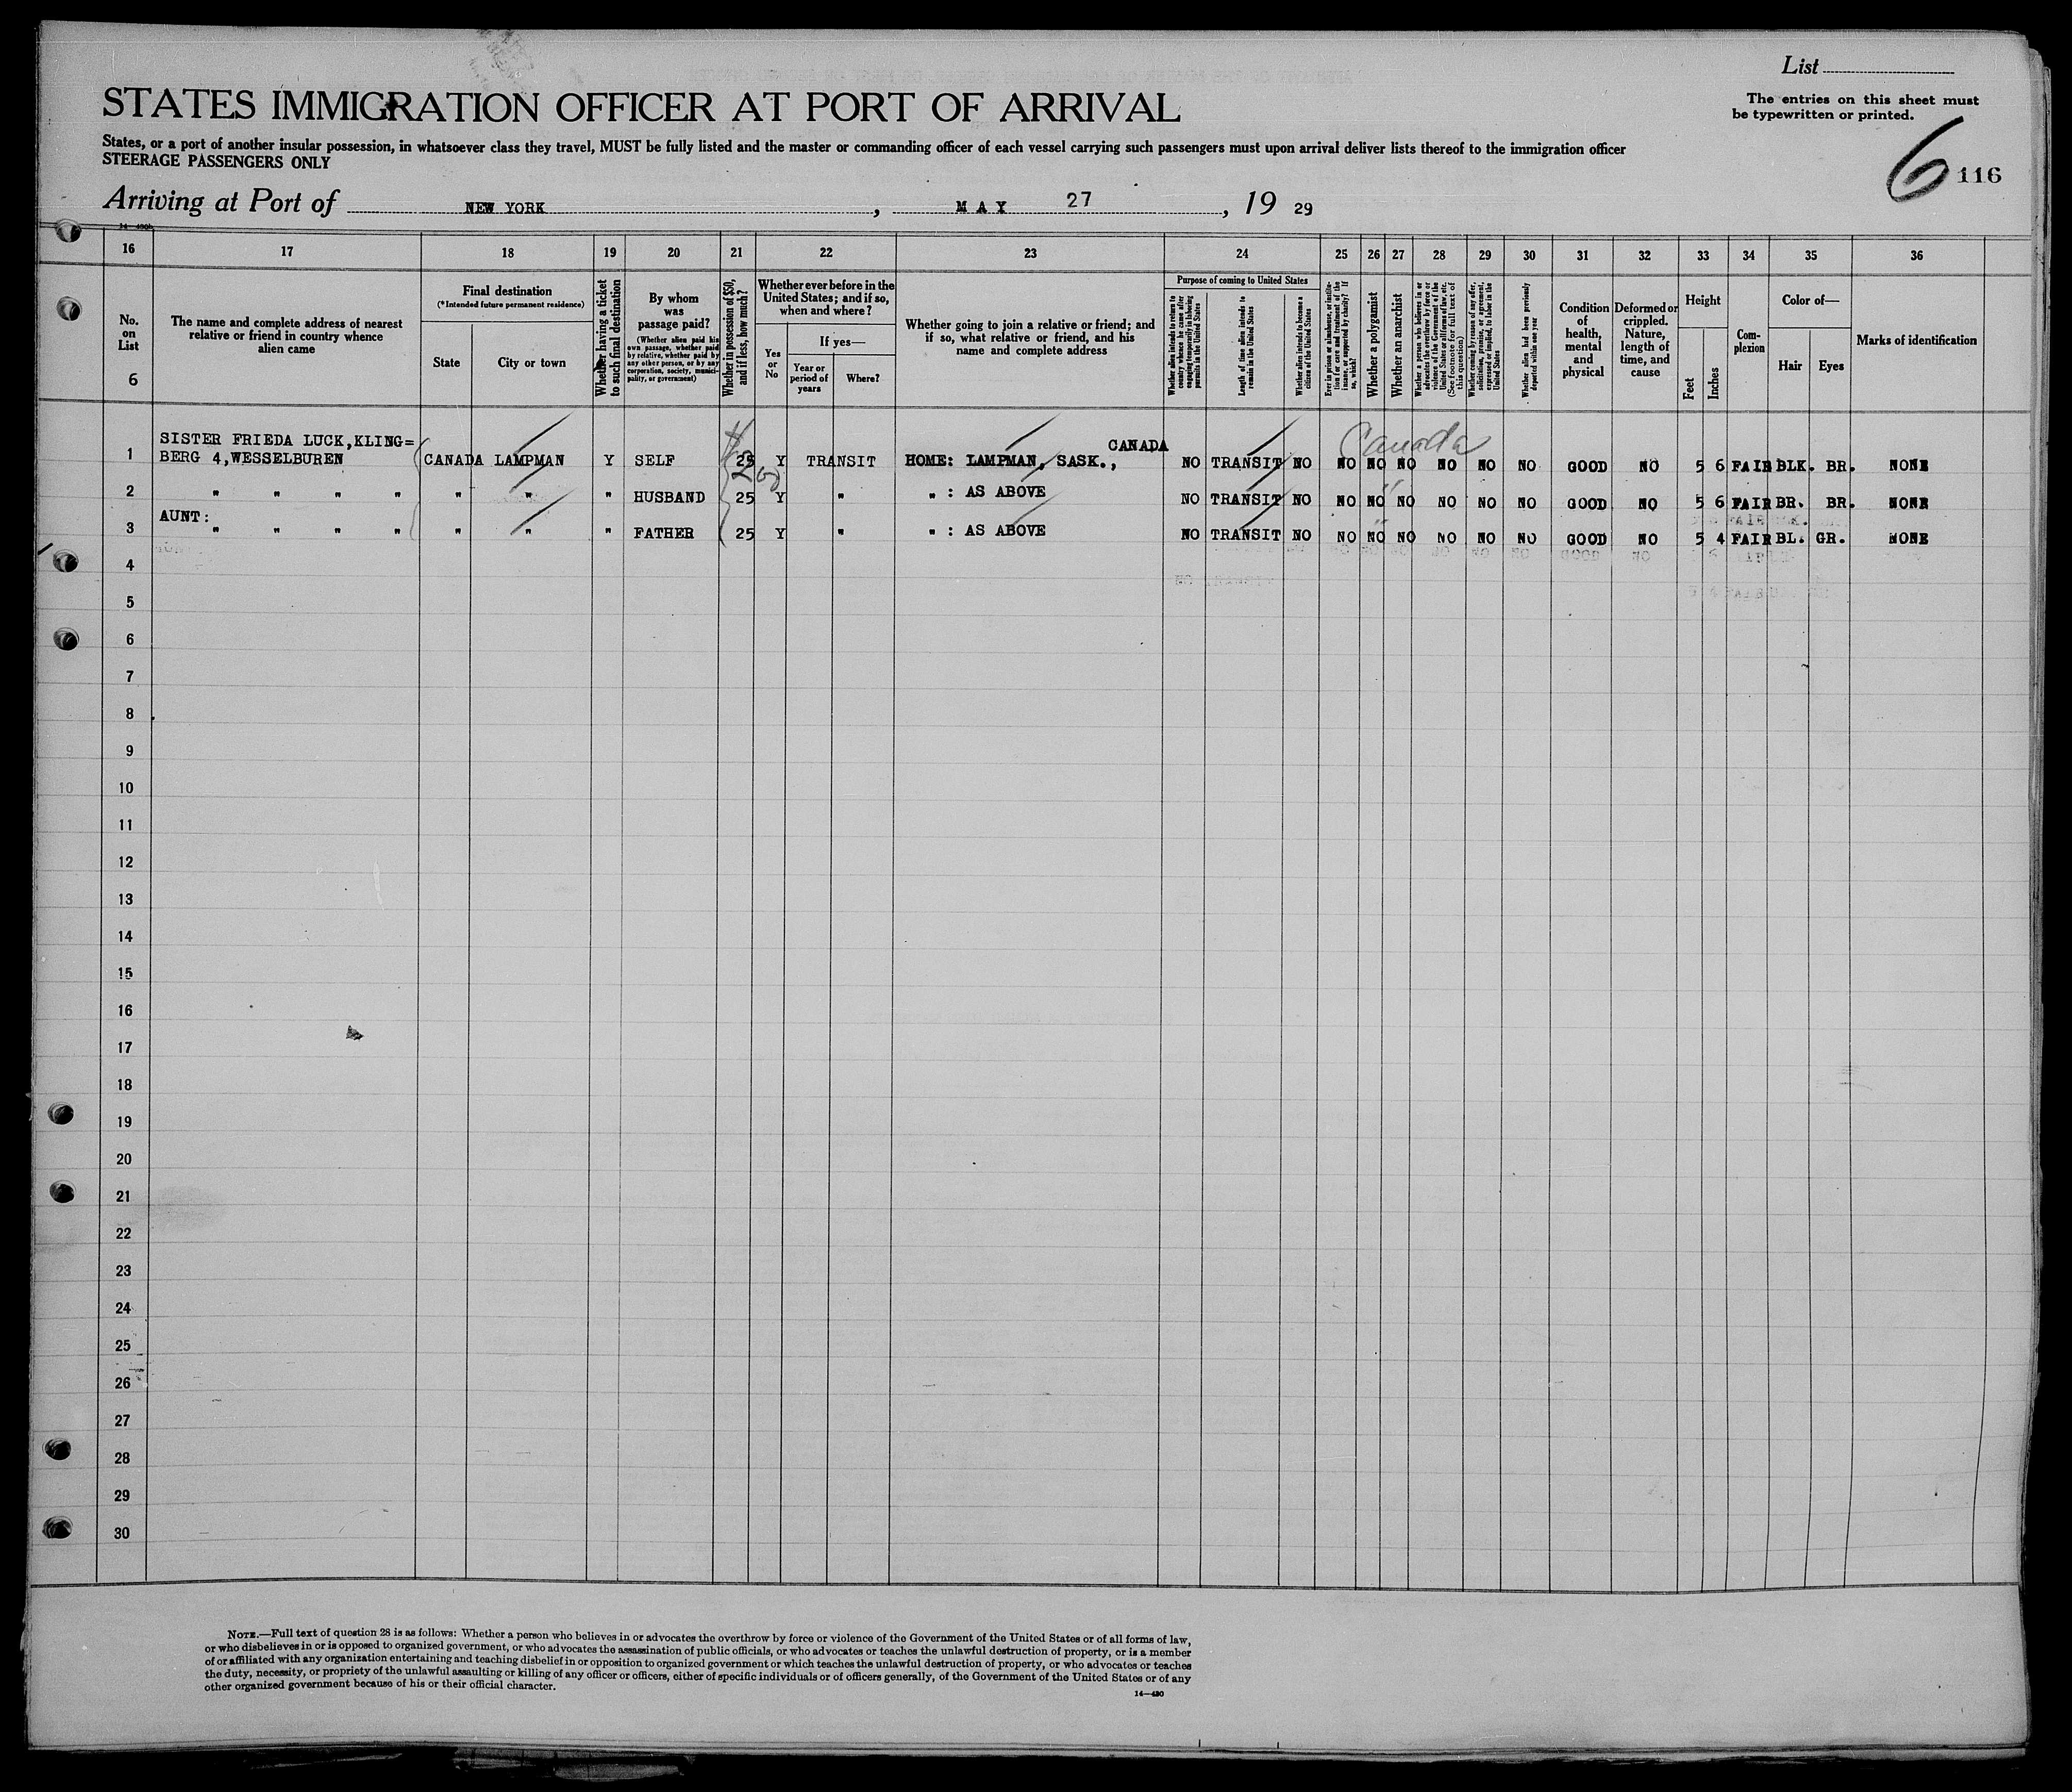 List
STATES IMMIGRATION OFFICER AT PORT OF ARRIVAL
The entries on this sheet must
be typewritten or printed.
States, or a port of another insular possession, in whatsoever class they travel, MUST be fully listed and the master or commanding officer of each vessel carrying such passengers must upon arrival deliver lists thereof to the immigration officer
STEERAGE PASSENGERS ONLY
6 116
Arriving at Port of NEW YORK, MAY 27, 19 29
16 17 18 19 20 21 22 23 24 25 26 27 28 29 30 31 32 33 34 35 36
No.
on
List
6
The name and complete address of nearest
relative or friend in country whence
alien came
Final destination
(*Intended future permanent residence)
State
City or town
Whether having a ticket
to such final destination
By whom
was
passage paid?
(Whether alien paid his
own passage, whether paid
by relative, whether paid by
any other person, or by any
corporation, society, munici-
pality, or government)
Whether in possession of $50,
and if less, how much?
Whether ever before in the
United States; and if so,
when and where?
Yes
or
No
If yes—
Year or
period of
years
Where?
Whether going to join a relative or friend; and
if so, what relative or friend, and his
name and complete address
Purpose of coming to United States
Whether alien intends to return to
country whence he came after
engaging temporarily in laboring
pursuits in the United States
Length of time alien intends to
remain in the United States
Whether alien intends to become a
citizen of the United States
Ever in prison or almshouse, or institu-
tion for care and treatment of the
insane, or supported by charity? If
so, which?
Whether a polygamist
Whether an anarchist
Whether a person who believes in or
advocates the overthrow by force or
violence of the Government of the
United States or all forms of law, etc.
(See footnote for full text of
this question)
Whether coming by reason of any offer,
solicitation, promise, or agreement,
expressed or implied, to labor in the
United States
Whether alien had been previously
deported within one year
Condition
of
health,
mental
and
physical
Deformed or
crippled.
Nature,
length of
time, and
cause
Height
Feet
Inches
Com-
plexion
Color of—
Hair
Eyes
Marks of identification
Canada
SISTER FRIEDA LUCK,KLING= CANADA
1 BERG 4,WESSELBUREN CANADA LAMPMAN Y SELF 25 Y TRANSIT HOME: LAMPMAN, SASK., NO TRANSIT NO NO NO NO NO NO NO GOOD NO 5 6 FAIR BLK. BR. NONE
2 " " " " " " " HUSBAND 25 Y " " : AS ABOVE NO TRANSIT NO NO NO NO NO NO NO GOOD NO 5 6 FAIR BR. BR. NONE
AUNT:
3 " " " " " " " FATHER 25 Y " " : AS ABOVE NO TRANSIT NO NO NO NO NO NO NO GOOD NO 5 4 FAIR BL. GR. NONE
4
5
6
7
8
9
10
11
12
13
14
15
16
17
18
19
20
21
22
23
24
25
26
27
28
29
30
NOTE.—Full text of question 28 is as follows: Whether a person who believes in or advocates the overthrow by force or violence of the Government of the United States or of all forms of law,
or who disbelieves in or is opposed to organized government, or who advocates the assassination of public officials, or who advocates or teaches the unlawful destruction of property, or is a member
of or affiliated with any organization entertaining and teaching disbelief in or opposition to organized government or which teaches the unlawful destruction of property, or who advocates or teaches
the duty, necessity, or propriety of the unlawful assaulting or killing of any officer or officers, either of specific individuals or of officers generally, of the Government of the United States or of any
other organized government because of his or their official character.
14—430